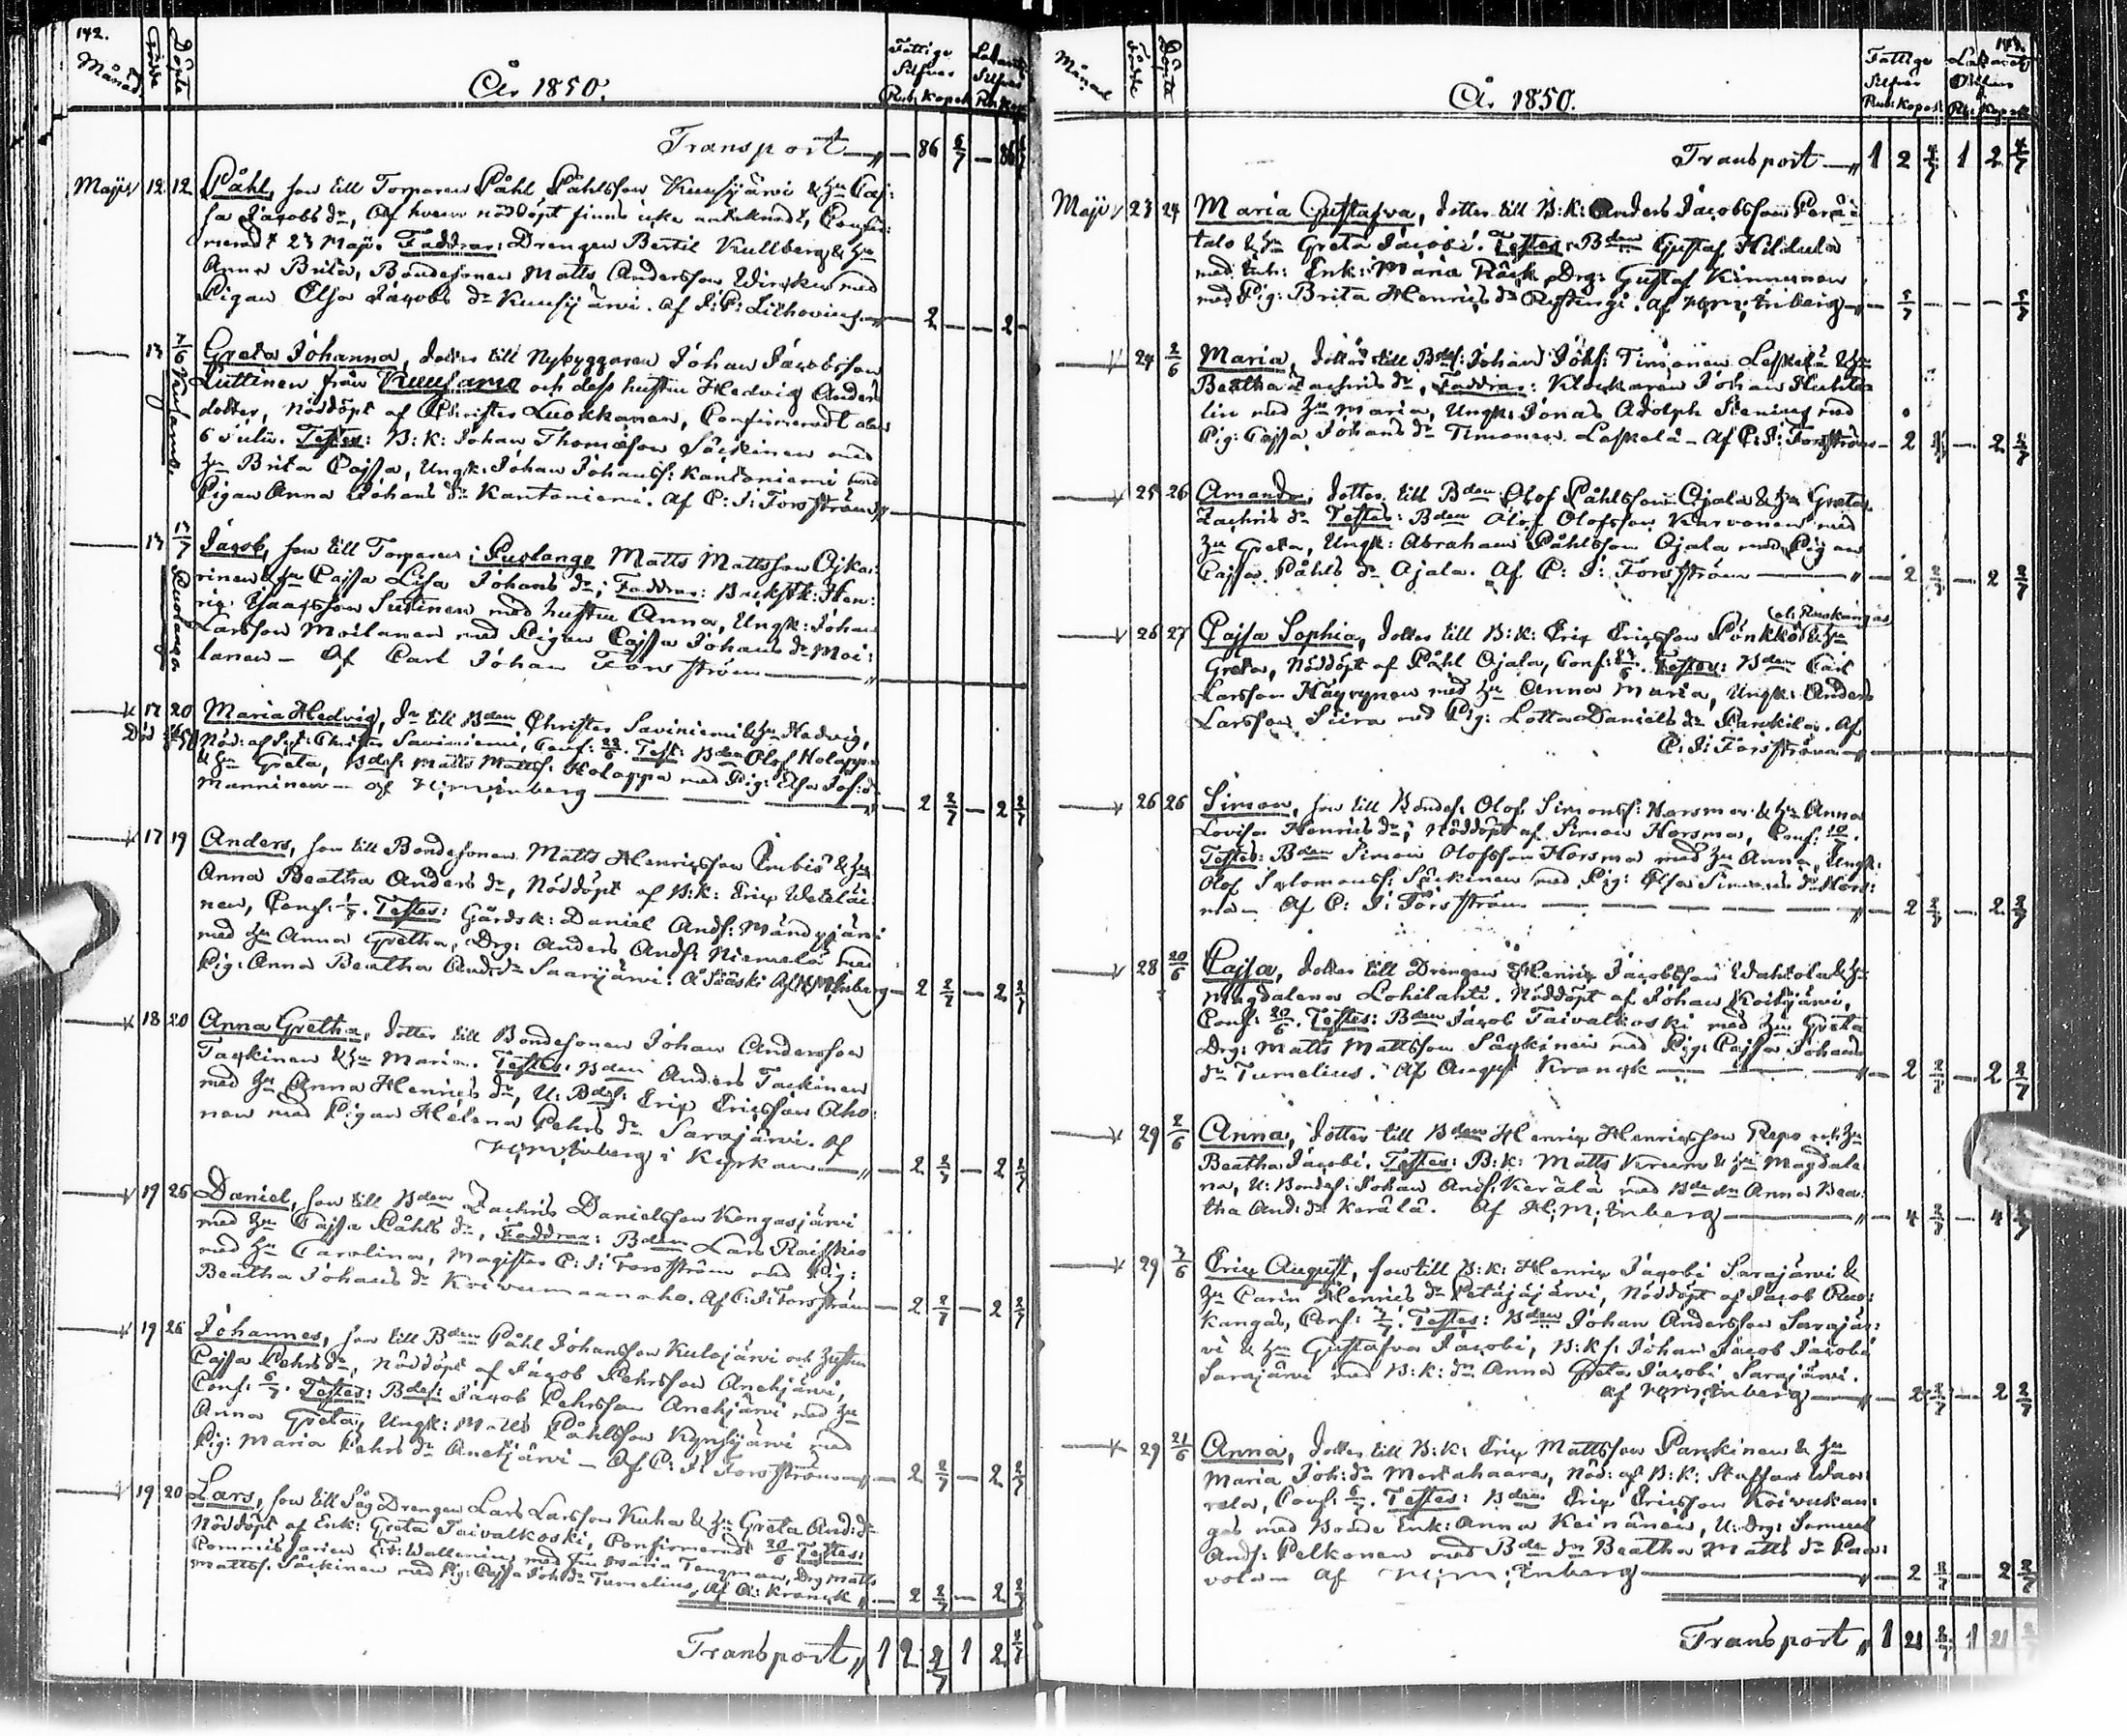 142.
Månad. Födde Döpte
År 1850.
Fattige Silfver Rub. Kopek
Silfver Rb Kop
Transport — 86 6/7 — 86 6/7
Majus 12 12 Påhl, son till Torparen Påhl Påhlsson Kuusijärvi & Hu Caj:
sa Jacobs dr, af hvem nöddöpt finns icke antecknadt, Confir:
merad 23 Maji. Faddrar: Drengen Bertil Kullberg & Hu
Anna Brita, Bondesonen Matts Andersson Wirkku med
Pigan Elsa Jacobs dr Kuusijärvi. af — 2 — — 2 —
13 7/6 Kuusamo Greta Johanna, dotter till Nybyggaren Johan Jacobsson
Luttinen från Kuusamo och dess hustru Hedvig Anders
dotter, Nöddöpt af Christer Luokkanen, Confirmeradt den
6 Julii. Testes: B:K: Johan Thomasson Säckinen med
Hu Brita Cajsa, Ungk: Johan Johanss: Kantoniemi med
Pigan Anna Johans dr Kantoniemi. Af C: J: Forsström
13 Puolango Jacob, son till Torparen i Puolango Matts Mattsson Ojka:
rinen & Hu Cajsa Lisa Johans dr; Faddrar: Backstk: Hen:
ric Isaacsson Sutinen med hustru Anna, Ungk: Johan
Larsson Moilanen med Pigan Cajsa Johans dr Moi:
lanen — Af Carl Johan Forsström
17 20 Maria Hedvig, dr till Bden Christer Saviniemi & Hu Hedvig,
Död
Nöd: af Christer Saviniemi, Conf: Test: Bden Olof Holappa
& Hu Greta, Bdes: Matts Mattss: Holappa med Pig: Elsa
Manninen — af H: M: Enberg — 2 2/7 — 2 2/7
17 19 Anders, son till Bondesonen Matts Henricsson Embis & Hu
Anna Beatha Anders dr, Nöddöpt af B:K: Eric Weteläi:
nen, Conf: Testes: Gårdsk: Daniel Ands: Mändyjärvi
med Hu Anna Gretha, Drg: Anders Ands: Niemelä med
Pig: Anna Beatha And: dr Saarijärvi. Af H: M: Enberg — 2 2/7 — 2 2/7
18 20 Anna Gretha, dotter till Bondesonen Johan Andersson
Tackinen & Hu Maria. Testes: Bden Anders Tackinen
med Hu Anna Henrics dr, U: Bdes: Eric Ericsson Aho:
nen med Pigan Helena Pehrs dr Sarajärvi. Af
H: M: Enberg i Kyrkan — 2 2/7 — 2 2/7
19 26 Daniel, son till Bden Zachris Danielsson Kongasjärvi
med Hu Cajsa Påhls dr, Faddrar: Bden Lars Raiskio
med Hu Carolina, Magister C: J: Forsström med Pig:
Beatha Johans dr Koivumaanaho. Af C: J: Forsström — 2 2/7 — 2 2/7
19 26 Johannes, son till Bden Påhl Johansson Kulojärvi och Hustru
Cajsa Pehrs dr, Nöddöpt af Jacob Pehrsson Anehjärvi,
Conf: 6/7. Testes: Bdes: Jacob Pehrsson Anehjärvi med Hu
Anna Greta, Ungk: Matts Påhlsson Kynsijärvi med
Pig: Maria Pehrs dr Anehjärvi — Af C: J: Forsström — 2 2/7 — 2 2/7
19 20 Lars, son till Såg Drengen Lars Larsson Kuha & Hu Greta And: dr
Nöddöpt af Enk: Greta Taivalkoski, Confirmerad 20/6 Testes:
Commissarien Wallenius med fru Maria Tengman, Drg Matts
Mattss. Säckinen med Pig: Cajsa Joh: dr Tumelius, Af A: Kranck — 2 2/7 — 2 2/7
Transport 1 2 4/7 1 2 4/7
143.
Månad Födde Döpte
År 1850.
Fattige Silfver Rub: Kopek
Silfver Rb: Kopek
Transport — 1 2 4/7 1 2 4/7
Majus 23 24 Maria Gustafva, dotter till B:K: Anders Jacobsson Perä:
talo & Hu Greta Jacobi. Testes: Bden Gustaf Hildula
med Enk: Maria Räck, Drg: Gustaf Kinnunen
med Pig: Brita Henrics dr. Af H: M: Enberg
24 2/6 Maria, dotter till Bdes: Johan Johs: Timonen Laskela & Hu
Beatha Zachris dr, Faddrar: Klockaren Johan Huhta
lin med Hu Maria, Ungk: Jonas Adolph Stenius med
Pig: Cajsa Johans dr Timonen Laskelä — Af C: J: Forsström — 2 2/7 — 2 2/7
25 26 Amanda, dotter till Bden Olof Påhlsson Ojala & Hu Greta
Zachris dr Testes: Bden Olof Olofsson Karvonen med
Hu Greta, Ungk: Abraham Påhlsson Ojala med Pigan
Cajsa Påhls dr Ojala. Af C: J: Forsström — 2 2/7 — 2 2/7
26 27 Cajsa Sophia, dotter till B:K: Eric Ericsson Pönkkö & Hu
Greta, Nöddöpt af Påhl Ojala, Conf: Testes: Bden Carl
Larsson Häyrynen med Hu Anna Maria, Ungk: Anders
Larsson Siira med Pig: Lotta Daniels dr Parkkila. Af
C: J: Forsström
26 26 Simon, son till Bondes: Olof Simonss: Horsma & Hu Anna
Lovisa Henrics dr, Nöddöpt af Simon Horsma, Conf:
Testes: Bden Simon Olofsson Horsma med Hu Anna, Ungk:
Olof Salomonss: Säckinen med Pig: Elsa Simons dr Hors:
ma — Af C: J: Forsström — 2 2/7 — 2 2/7
28 20/6 Cajsa, dotter till Drengen Henric Jacobsson Wahtola & Hu
Magdalena Lohilahti. Nöddöpt af Johan Koitijärvi,
Conf: 20/6. Testes: Bden Jacob Taivalkoski med Hu Greta
Drg: Matts Mattsson Säckinen med Pig: Cajsa Johans
dr Tumelius. Af August Kranck — 2 2/7 — 2 2/7
29 2/6 Anna, dotter till Bden Henric Henricsson Repo och Hu
Beatha Jacobi. Testes: B:K: Matts Krum & Hu Magdale
na, U: Bondes: Johan Ands: Kerälä med Bde dr Anna Bea:
tha And: dr Kerälä. Af H: M: Enberg — 4 2/7 — 4 2/7
29 Eric August, son till B:K: Henric Jacobi Sarajärvi &
Hu Carin Henrics dr Petäjäjärvi, Nöddöpt af Jacob Ruo:
kangas, Conf: Testes: Bden Johan Andersson Sarajär:
vi & Hu Gustafva Jacobi, B:Ks: Johan Jacob Jacobi
Sarajärvi med B:K: dr Anna Greta Jacobi Sarajärvi.
Af H: M: Enberg — 2 2/7 — 2 2/7
29 21/6 Anna, dotter till B:K: Eric Mattsson Parckinen & Hu
Maria Joh: dr Mertahaara, Nöd: af B:K: Staffan Waa:
rala, Conf: 6/7. Testes: Bden Eric Ericsson Koivukan:
gas med Bonde Enk: Anna Keinänen, U: Drg: Samuel
Ands: Pelkonen med Bde dr Beatha Matts dr Paa:
vola — Af H: M: Enberg — 2 2/7 — 2 2/7
Transport 1 21 1 21